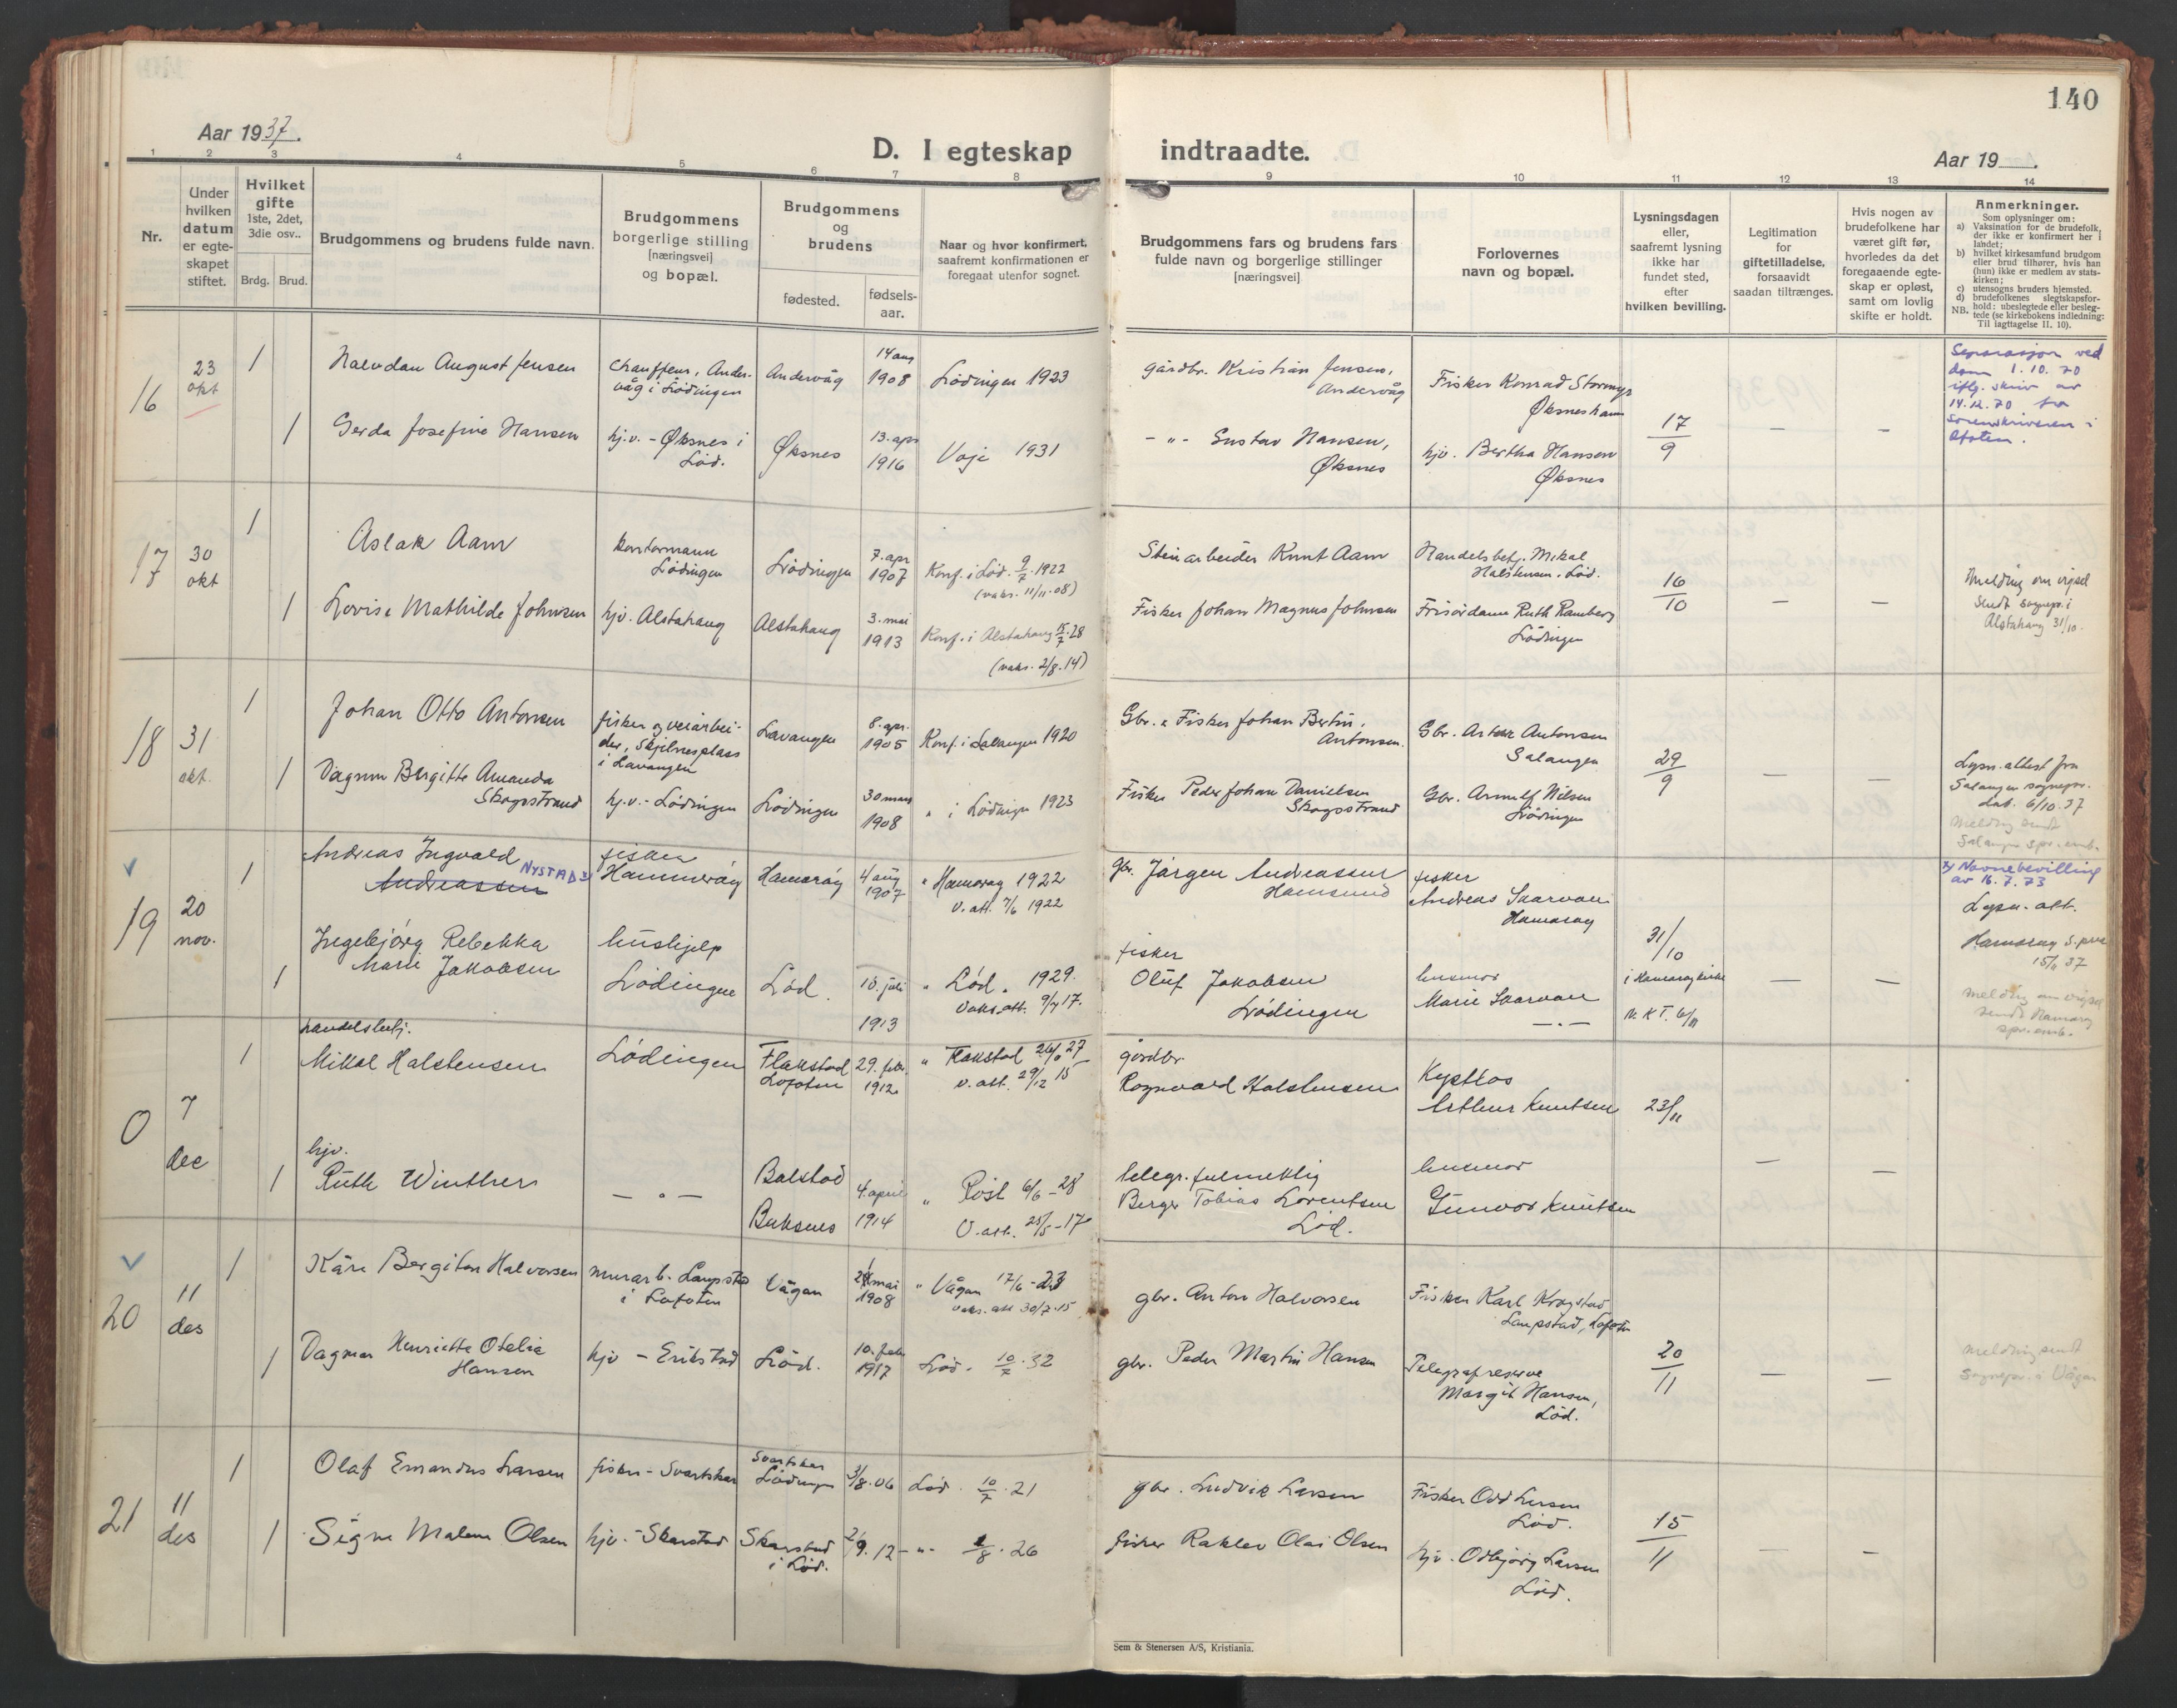 140
Aar 1937.
D. I egteskap indtraadte.
Aar 19__.
1 2 3 4 5 6 7 8 9 10 11 12 13 14
Nr.
Under hvilken datum er egte-skapet stiftet.
Hvilket gifte 1ste, 2det, 3die osv..
Brdg. Brud.
Brudgommens og brudens fulde navn.
Brudgommens borgerlige stilling [næringsvei] og bopæl.
Brudgommens og brudens
fødested.
fødsels-aar.
Naar og hvor konfirmert, saafremt konfirmationen er foregaat utenfor sognet.
Brudgommens fars og brudens fars fulde navn og borgerlige stillinger [næringsvei].
Forlovernes navn og bopæl.
Lysningsdagen eller, saafremt lysning ikke har fundet sted, efter hvilken bevilling.
Legitimation for giftetilladelse, forsaavidt saadan tiltrænges.
Hvis nogen av brudefolkene har været gift før, hvorledes da det foregaaende egte-skap er opløst, samt om lovlig skifte er holdt.
Anmerkninger.
Som oplysninger om:
a) Vaksination for de brudefolk, der ikke er konfirmert her i landet;
b) hvilket kirkesamfund brudgom eller brud tilhører, hvis han (hun) ikke er medlem av stats-kirken;
c) utensogns bruders hjemsted.
d) brudefolkenes slegtskapsfor-hold: ubeslegtede eller besleg-tede (se kirkebokens indledning: Til iagttagelse II. 10).
NB.
16
23 okt
1
Halvdan August Jensen
Chauffeur, Ander-
våg i Lødingen
Andervåg
14 aug
1908
Lødingen 1923
gårdbr. Kristian Jensen,
Andervåg
Fisker Konrad Stormyr
Øksneshavn
1
Gerda Josefine Hansen
hj.v. - Øksnes i
Lød.
Øksnes
13. apr
1916
Voje 1931
-"- Gustav Hansen,
Øksnes
hjv. Bertha Hansen
Øksnes
17/9
Separasjon ved
dom 1.10.70
iflg. skriv av
14.12.70 fra
Sorenskriveren i
Ofoten.
17
30 okt
1
Aslak Aam
Kontormann
Lødingen
Lødingen
7. apr
1907
Konf. i Lød. 9/7. 1922
(vaks. 11/11-08)
Steinarbeider Knut Aam
Handelsbetj. Mikal
Halstensen. Lød.
1
Lovise Mathilde Johnsen
hjv. Alstahaug
Alstahaug
3. mai
1913
Konf. i Alstahaug 15/7.28
(vaks. 2/8.14)
Fisker Johan Magnus Johnsen
Frisørdame Ruth Ramberg
Lødingen
16/10
Melding om vigsel
sendt sognepr. i
Alstahaug 31/10.
18
31 okt.
1
Johan Otto Antonsen
fisker og veiarbei-
der, Skjelnesplass
i Lavangen
Lavangen
8. apr.
1905
Konf. i Salangen 1920
Gbr. & Fisker Johan Bertin.
Antonsen.
Gbr. Arthur Antonsen
Salangen
1
Dagrun Bergitte Amanda
Skogsstrand
hj.v. - Lødingen
Lødingen
30 mars
1908
" i Lødingen 1923
Fisker Peder Johan Danielsen
Skogsstrand
Gbr. Arnulf Nilsen
Lødingen
29/9
Lysn. attest fra
Salangen sognepr.
dat. 6/10.37
Melding sendt
Salangen spr.emb.
19
20 nov.
1
Andreas Ingvald NYSTAD
Andreassen
fisker
Hammerøy
Hamarøy
4 aug
1907
" Hamarøy 1922
V. att. 7/6 1922
gbr. Jørgen Andreassen
Hamsund
fisker
Andreas Skarvan
Hamarøy
1
Ingebjørg Rebekka
Marie Jakobsen
hushjelp
Lødingen
Lød.
10. juli
1913
" Lød. 1929.
Vaks.att. 9/7 17.
fisker
Oluf Jakobsen
Lødingen
husmor
Marie Skarvan
-"-
31/10
i Hamarøy kirke
Navnebevilling
av 16.7.73
Lysn. att.
Hamarøy s.pr.
15/11 37
Melding om vigsel
sendt Hamarøy
spr.emb.
0
7 dec
1
handelsbetj.
Mikal Halstensen
Lødingen
Flakstad
Lofoten
29. febr.
1912
" Flakstad 26/6 27
v. att. 29/12 15
gårdbr.
Rognvald Halstensen
Kystlos
Arthur Knutsen
23/11
1
hjv.
Ruth Winther
- " -
Balstad
Buksnes
4. april
1914
" Røst 6/6 - 28
V. att. 25/5 - 17
telegr. fulmektig
Berger Tobias Lorentsen
Lød.
husmor
Gunvor Knutsen
20
11 des
1
Kåre Bergiton Halvorsen
murarb. Laupstad
i Lofoten
Vågan
mai
1908
" Vågan 17/6 - 23
vaks. att 30/7.15
gbr. Anton Halvorsen
Fisker Karl Kragstad
Laupstad, Lofoten
1
Dagmar Henriette Otelie
Hansen
hjv - Erikstad
Lød.
10. feb
1917
Lød. 10/7.32
gbr. Peder Martin Hansen
Telegrafreserve
Margit Hansen,
Lød.
20/11
Melding sendt
sognepr. i Vågan
21
11 des
1
Olaf Emandus Larsen
fisker - Svartskar
Svartskar
Lødingen
3/8.06
Lød. 10/7.21
gbr. Ludvik Larsen
Fisker Odd Larsen
Lød.
1
Signe Malene Olsen
hjv. - Skarstad
Skarstad
i Lød.
2/9.12
-"- /8.26
fisker Rakler Olai Olsen
hjv. Odbjørg Larsen
Lød.
15/11
Sem & Stenersen A/S, Kristiania.